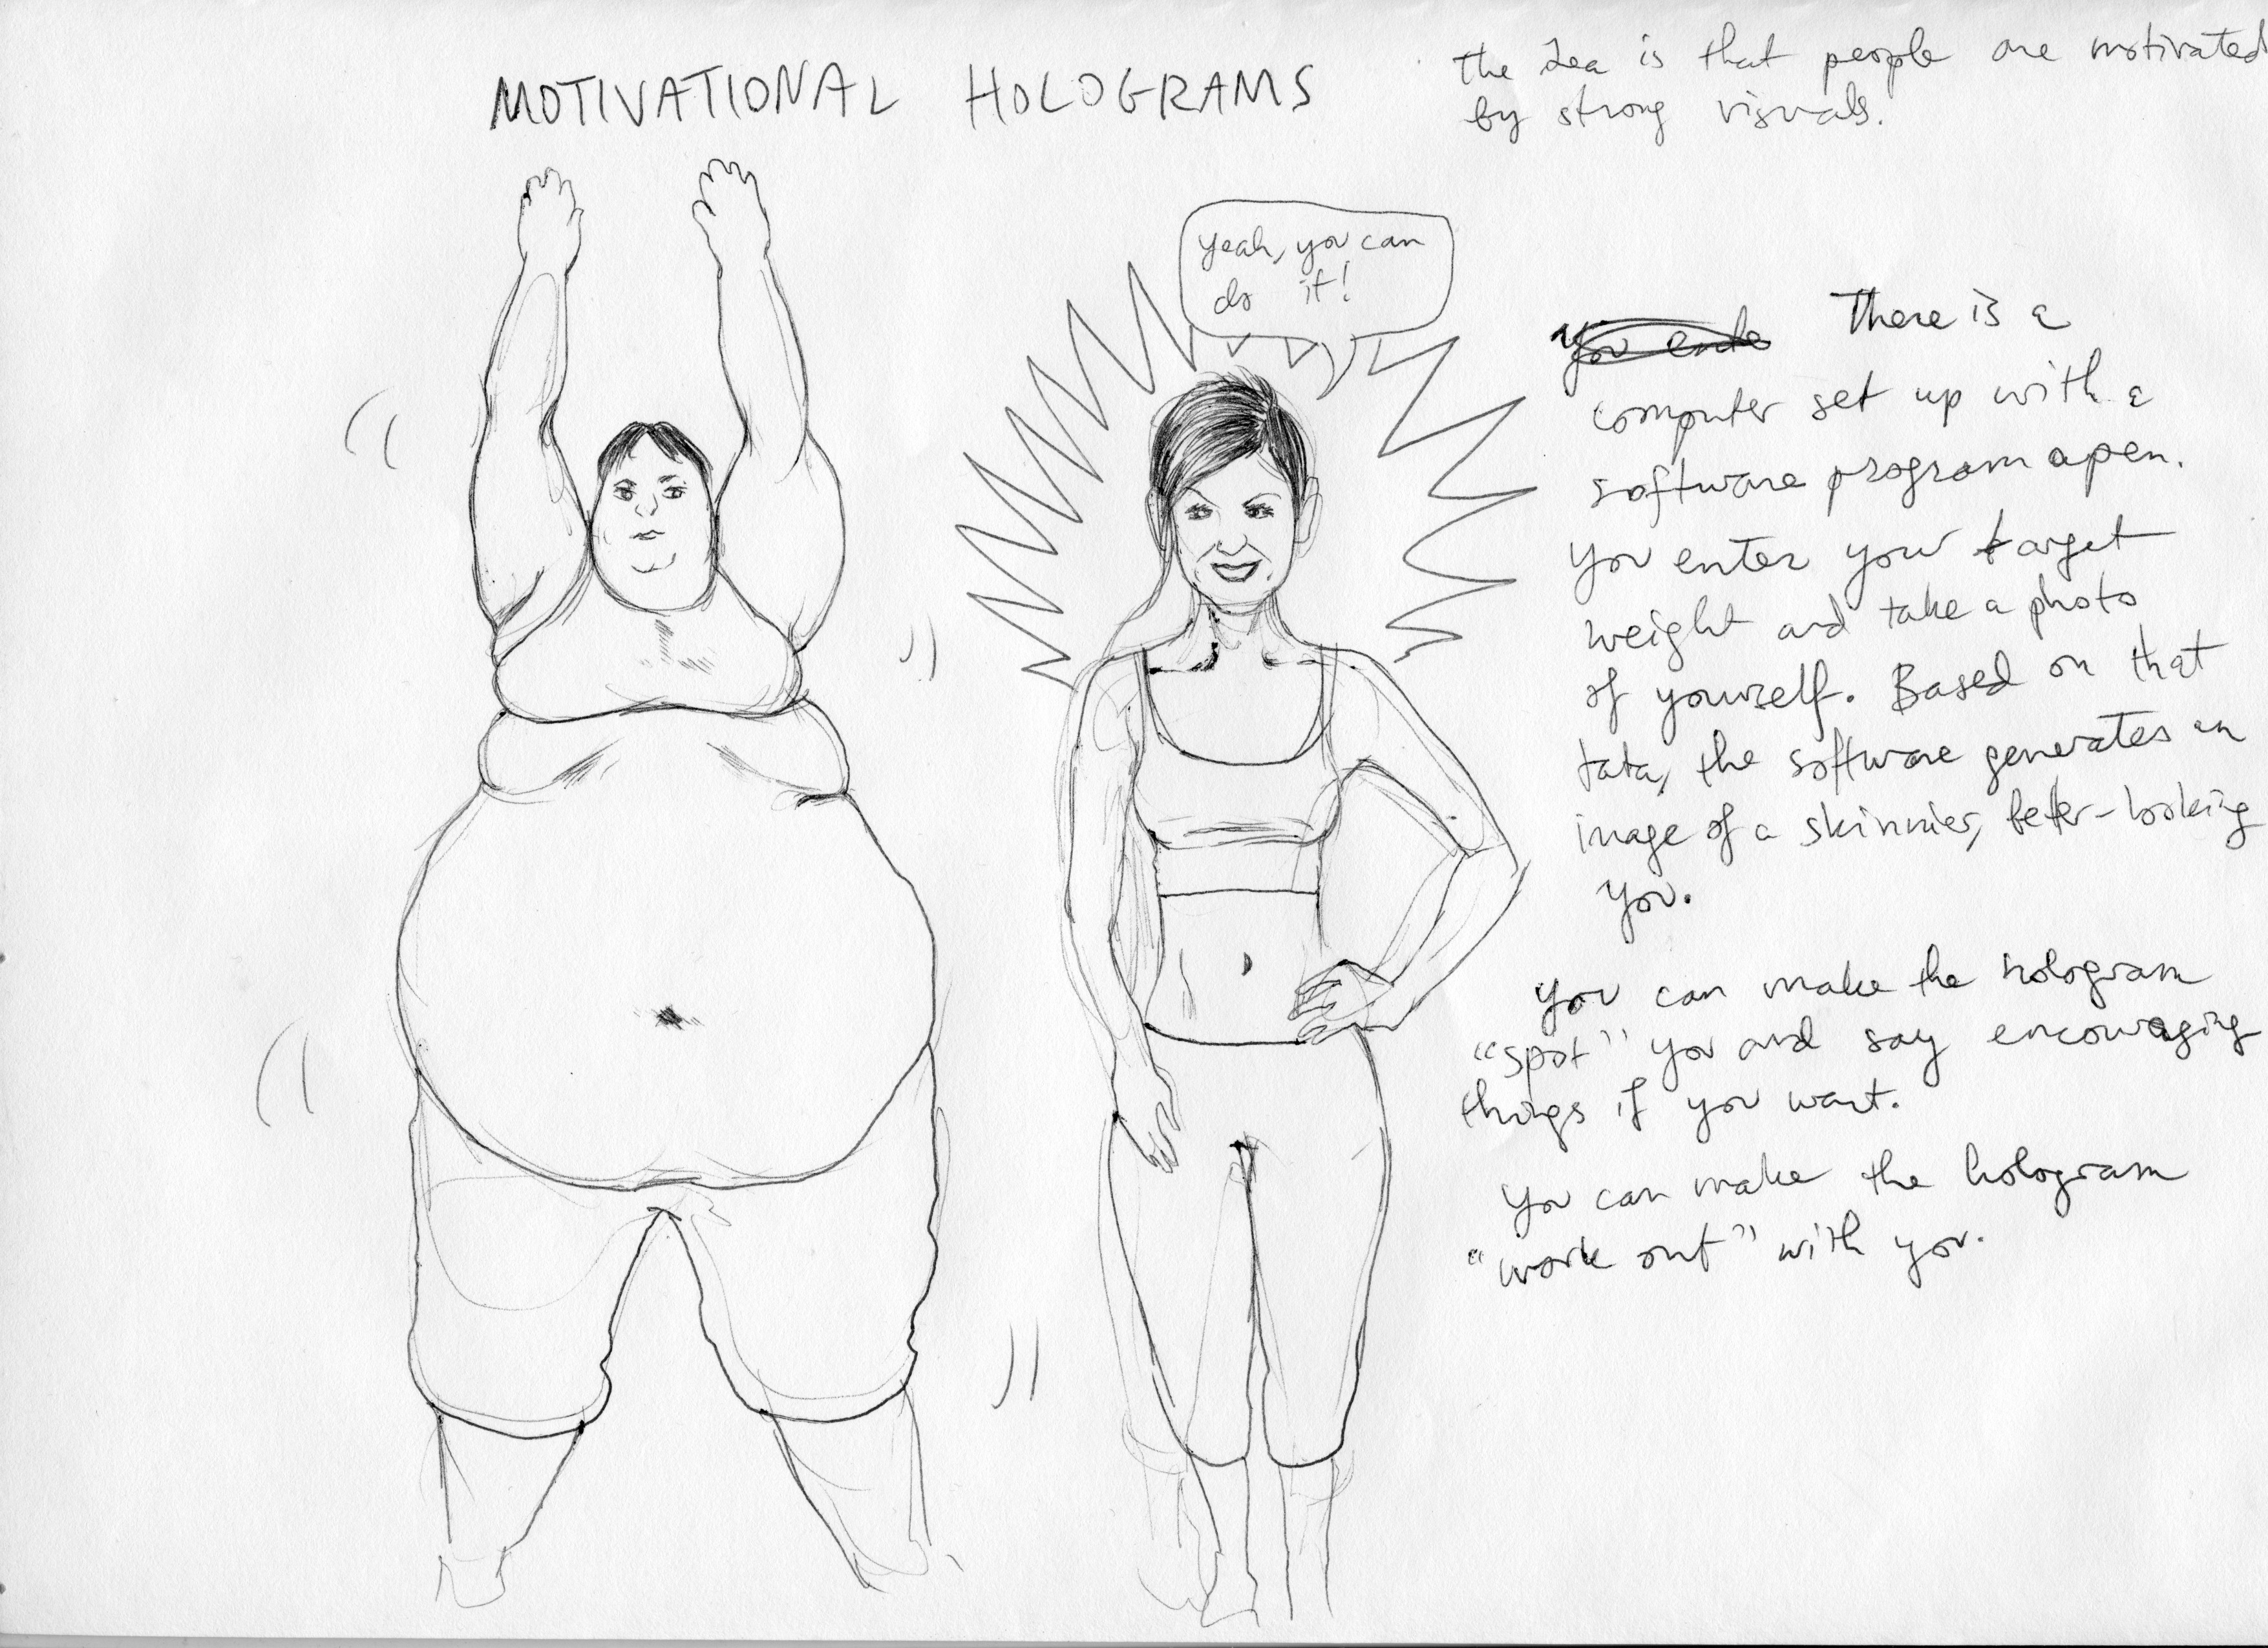 MOTIVATIONAL HOLOGRAMS
the Idea is that people are motivated
by strong visuals.
yeah, you can
do it!
You ente There is a
computer set up with a
software program open.
You enter your target
weight and take a photo
of yourself. Based on that
data, the software generates an
image of a skinnier, better-looking
you.
You can make the hologram
"spot" you and say encouraging
things if you want.
You can make the hologram
"work out" with you.